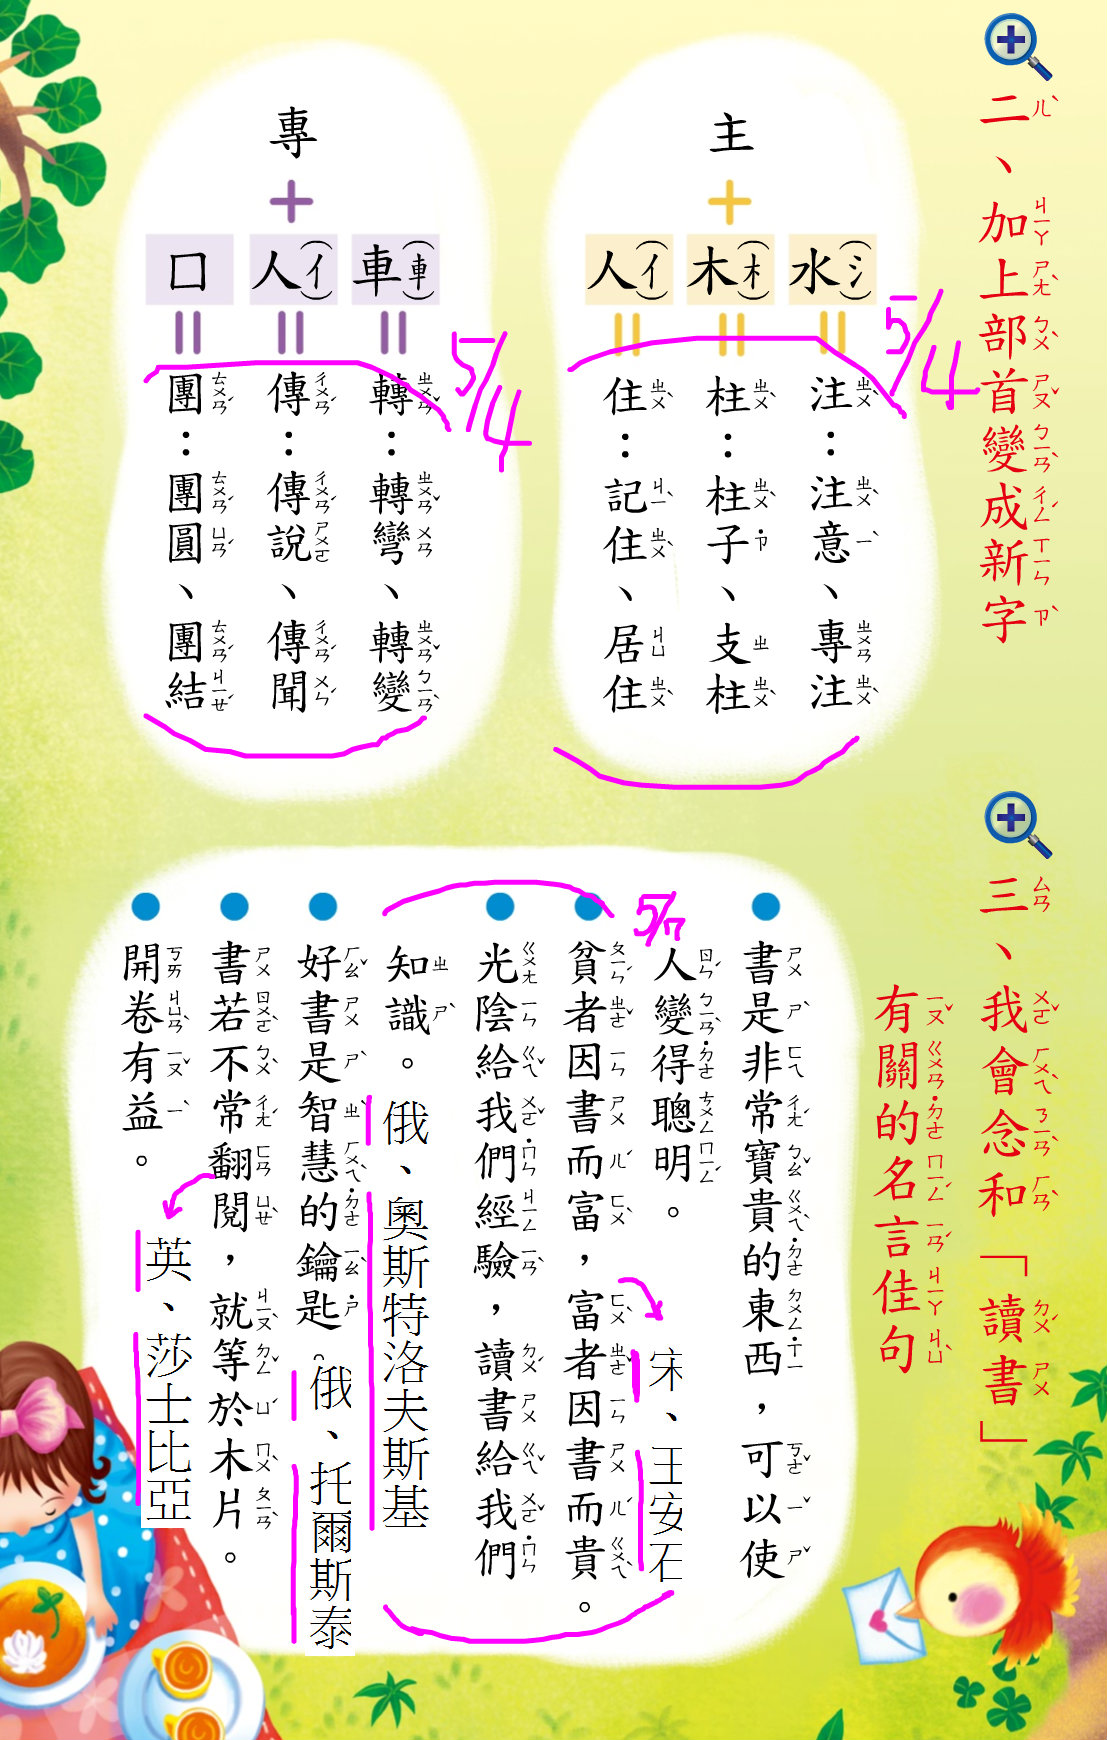 二、加上部首變成新字
主
+
水(氵) 木(木) 人(亻)
注:注意、專注
柱:柱子、支柱
住:記住、居住
5/4
專
+
車(車) 人(亻) 口
轉:轉彎、轉變
傳:傳說、傳聞
團:團圓、團結
5/4
三、我會念和「讀書」
有關的名言佳句
書是非常寶貴的東西,可以使
人變得聰明。
5/7
貧者因書而富,富者因書而貴。
宋、王安石
光陰給我們經驗,讀書給我們
知識。俄、奧斯特洛夫斯基
好書是智慧的鑰匙。俄、托爾斯泰
書若不常翻閱,就等於木片。
英、莎士比亞
開卷有益。